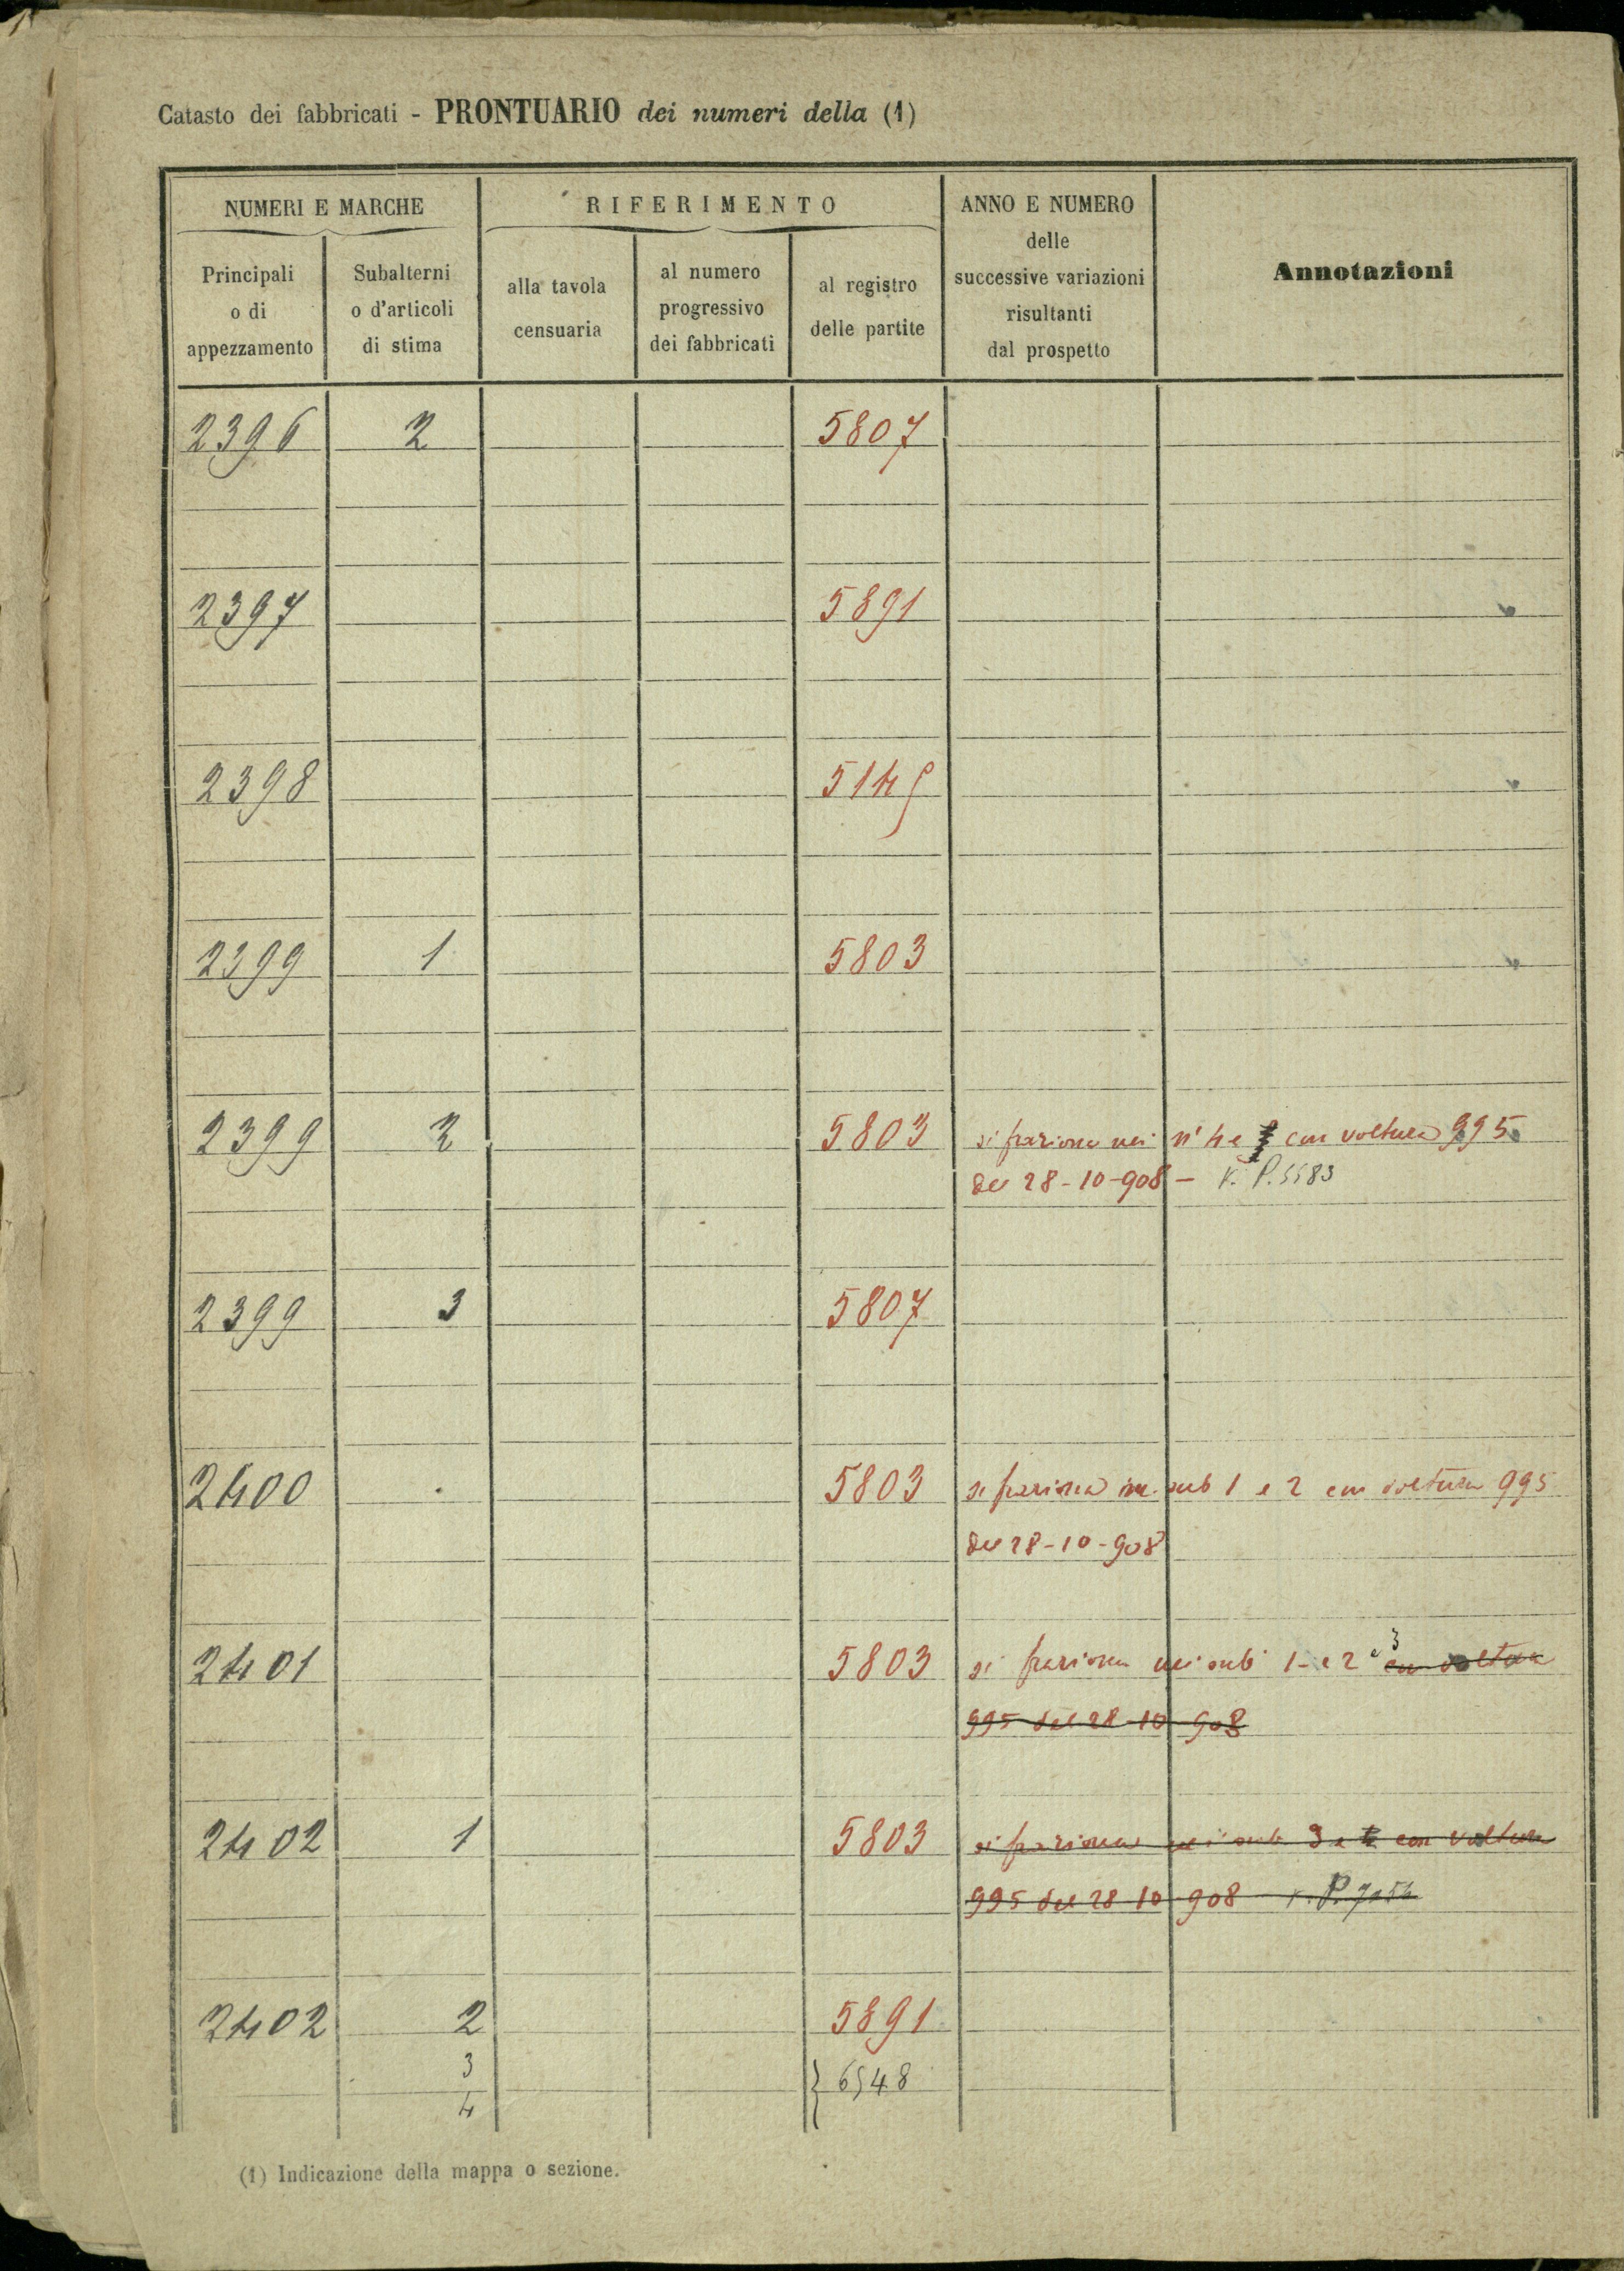 Catasto dei fabbricati - PRONTUARIO dei numeri della (1)
NUMERI E MARCHE
Principali o di appezzamento
Subalterni o d'articoli di stima
RIFERIMENTO
alla tavola censuaria
al numero progressivo dei fabbricati
al registro delle partite
ANNO E NUMERO delle successive variazioni risultanti dal prospetto
Annotazioni
2396 2 5807
2397 5891
2398 5149
2399 1 5803
2399 2 5803 si fraziona nei n' 4 e con voltura 995
del 28-10-908 - V. P. 5583
2399 3 5807
2400 5803 si fraziona in sub 1 e 2 con voltura 995
del 28-10-908
2401 5803 si fraziona nei sub 1 - e 2 e 3 con voltura
995 del 28-10-908
2402 1 5803 si fraziona nei sub 3 e 4 con voltura
995 del 28-10-908 V. P. 7054
2402 2 5891
3
4
} 6548
(1) Indicazione della mappa o sezione.